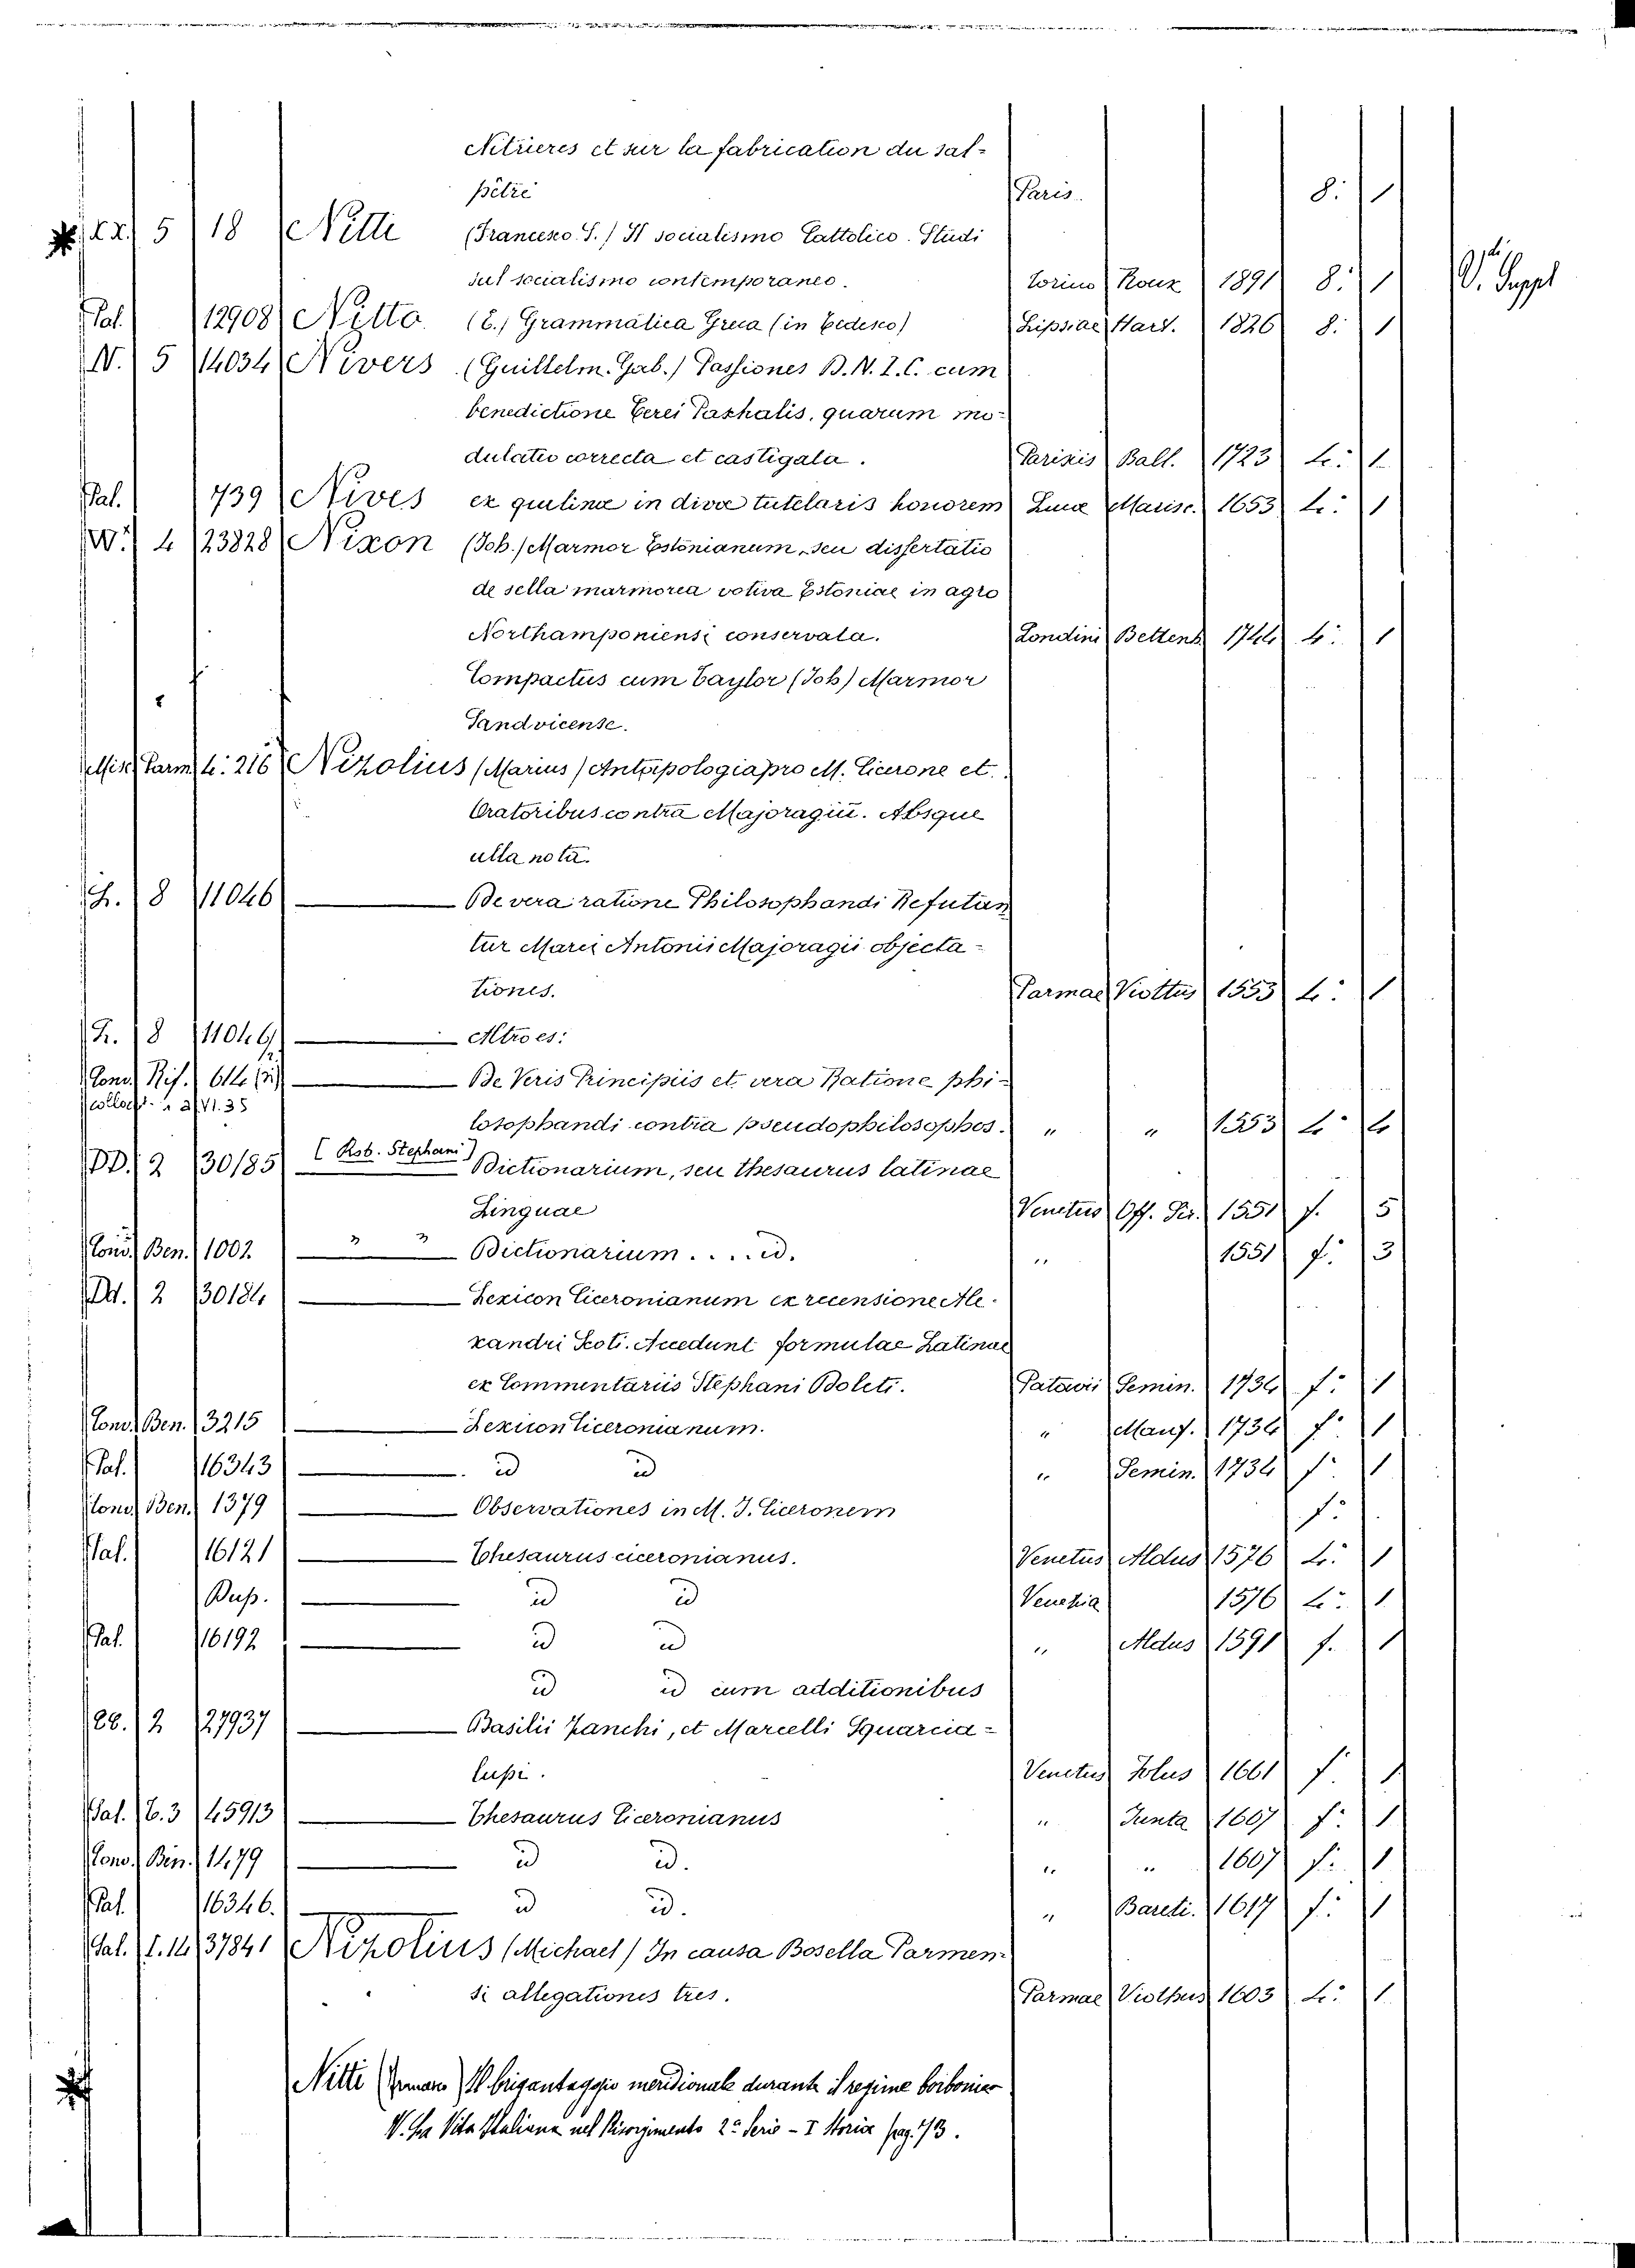 Nitrieres et sur la fabrication du sal-
pêtre Paris 8: 1
5 18 Nitti (Francesco S.) Il socialismo Cattolico. Studi
sul socialismo contemporaneo. Torino Roux 1891 8: 1 V. Suppl
Pal. 12908 Nitto (E.) Grammatica Greca (in Tedesco) Lipsiae Hart. 1826 8: 1
N. 5 14034 Nivers (Guillelm. Gab.) Passiones D. N. I. C. cum
benedictione Cerei Paschalis, quarum mo-
dulatio correcta et castigata. Parisiis Ball. 1723 4: 1
Pal. 739 Nives ex quilina in divæ tutelaris honorem Lucæ Marisc. 1653 4: 1
W. 4 23828 Nixon (Joh.) Marmor Estonianum, seu dissertatio
de sella marmorea votiva Estoniae in agro
Northamponiensi conservata. Londini Bettenh 1744 4: 1
Compactus cum Taylor (Joh) Marmor
Sandvicense.
Misc. Parm. 4: 216 Nizolius (Marius) Antapologia pro M. Cicerone et
Oratoribus contra Majoragiũ. Absque
ulla nota.
h. 8 11046 De vera ratione Philosophandi Refutan
tur Marci Antonii Majoragii objecta-
tiones. Parmae Viottus 1553 4: 1
h. 8 11049 Altro es:
Conv. Rif. 614 De Veris Principiis et vera Ratione phi-
losophandi contra pseudophilosophos. " " 1553 4: 4
DD. 2 30185 (Rob. Stephani) Dictionarium, seu thesaurus latinae
Linguae Venetus Off. Ter. 1551 f. 5
Conv. Ben. 1002 " " Dictionarium .... id. " 1551 f: 3
Dd. 2 30184 Lexicon Ciceronianum ex recensione Ale-
xandri Scoti. Accedunt formulae Latinae
ex Commentariis Stephani Doleti. Patavii Semin. 1734 f: 1
Conv. Ben. 3215 Lexicon Ciceronianum. " Manf. 1734 f: 1
Pal. 16343 id id " Semin. 1734 f: 1
Conv. Ben. 1379 Observationes in M. T. Ciceronem f:
Pal. 16121 Thesaurus ciceronianus. Venetus Aldus 1576 4: 1
Dup. id id Venezia 1576 4: 1
Pal. 16192 id id " Aldus 1591 f. 1
id id cum additionibus
2 27937 Basilii Zanchi, et Marcelli Squarcia-
lupi. Venetus 1661 f. 1
Pal. C. 3 45913 Thesaurus Ciceronianus " Junta 1607 f: 1
Conv. Ben. 1479 id id. " " 1607 f: 1
Pal. 16346. id id. " Bareti. 1617 f: 1
Pal. I. 14 37841 Nizolius (Michael) In causa Bosella Parmen-
si allegationis tres. Parmae Viothus 1603 4: 1
Nitti Il brigantaggio meridionale durante il regime borbonico
V. La Vita Italiana nel Risorgimento 2a Serie - I Storia pag. 73.